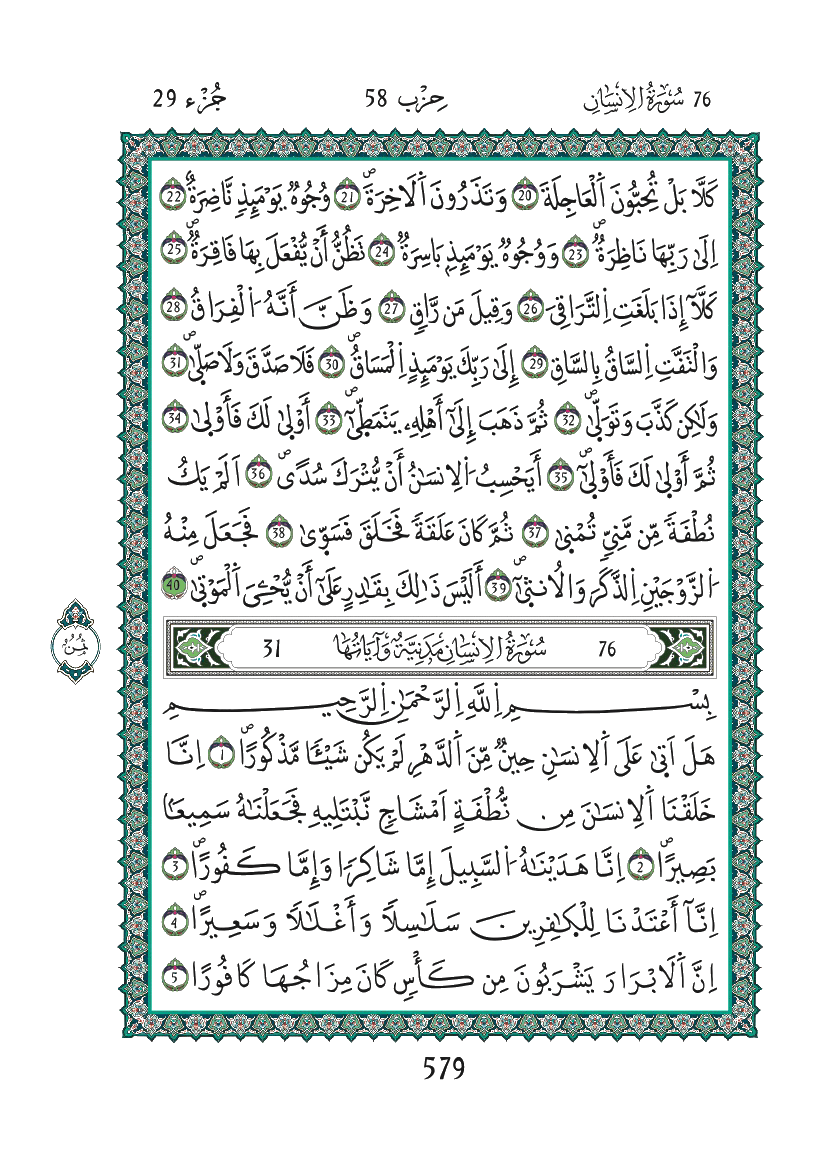 76 سُورَةُ الْاِنْسَانِ حِزْب 58 جُزْء 29
كَلَّا بَلْ تُحِبُّونَ اَ۬لْعَاجِلَةَ 20 وَتَذَرُونَ اَ۬لَاخِرَةَۖ 21 وُجُوهٞ يَوْمَئِذٖ نَّاضِرَةٌ 22
اِلَىٰ رَبِّهَا نَاظِرَةٞۖ 23 وَوُجُوهٞ يَوْمَئِذِۢ بَاسِرَةٞ 24 تَظُنُّ أَنْ يُّفْعَلَ بِهَا فَاقِرَةٞۖ 25
كَلَّآ إِذَا بَلَغَتِ اِ۬لتَّرَاقِيَ 26 وَقِيلَ مَن رَّاقٖ 27 وَظَنَّ أَنَّهُ اُ۬لْفِرَاقُ 28
وَالْتَفَّتِ اِ۬لسَّاقُ بِالسَّاقِ 29 إِلَىٰ رَبِّكَ يَوْمَئِذٍ اِ۬لْمَسَاقُۖ 30 فَلَا صَدَّقَ وَلَا صَلّٰىۖ 31
وَلَٰكِن كَذَّبَ وَتَوَلّٰىۖ 32 ثُمَّ ذَهَبَ إِلَىٰٓ أَهْلِهِۦ يَتَمَطّٰىٓۖ 33 أَوْلٰى لَكَ فَأَوْلٰى 34
ثُمَّ أَوْلٰى لَكَ فَأَوْلٰىٓۖ 35 أَيَحْسِبُ اُ۬لِانسَٰنُ أَنْ يُّتْرَكَ سُدًىۖ 36 اَلَمْ يَكُ
نُطْفَةٗ مِّن مَّنِيّٖ تُمْنٰى 37 ثُمَّ كَانَ عَلَقَةٗ فَخَلَقَ فَسَوّٰى 38 فَجَعَلَ مِنْهُ
اُ۬لزَّوْجَيْنِ اِ۬لذَّكَرَ وَالُانث۪ىٰٓۖ 39 أَلَيْسَ ذَٰلِكَ بِقَٰدِرٍ عَلَىٰٓ أَنْ يُّحْـِۧيَ اَ۬لْمَوْت۪ىٰۖ 40
76 سُورَةُ الْاِنْسَانِ مَدَنِيَّةٌ وَآيَاتُهَا 31
ثُمُنُ
بِسْمِ اِ۬للَّهِ اِ۬لرَّحْمَٰنِ اِ۬لرَّحِيمِ
هَلَ اَتٰى عَلَى اَ۬لِانسَٰنِ حِينٞ مِّنَ اَ۬لدَّهْرِ لَمْ يَكُن شَيْـٔٗا مَّذْكُورًاۖ 1 اِنَّا
خَلَقْنَا اَ۬لِانسَٰنَ مِن نُّطْفَةٍ اَمْشَاجٖ نَّبْتَلِيهِ فَجَعَلْنَٰهُ سَمِيعَۢا
بَصِيرًاۖ 2 اِنَّا هَدَيْنَٰهُ اُ۬لسَّبِيلَ إِمَّا شَاكِرٗا وَإِمَّا كَفُورًاۖ 3
اِنَّآ أَعْتَدْنَا لِلْكٰ۪فِرِينَ سَلَٰسِلًا وَأَغْلَٰلًا وَسَعِيرًاۖ 4
اِنَّ اَ۬لَابْرَارَ يَشْرَبُونَ مِن كَأْسٖ كَانَ مِزَاجُهَا كَافُورًا 5
579